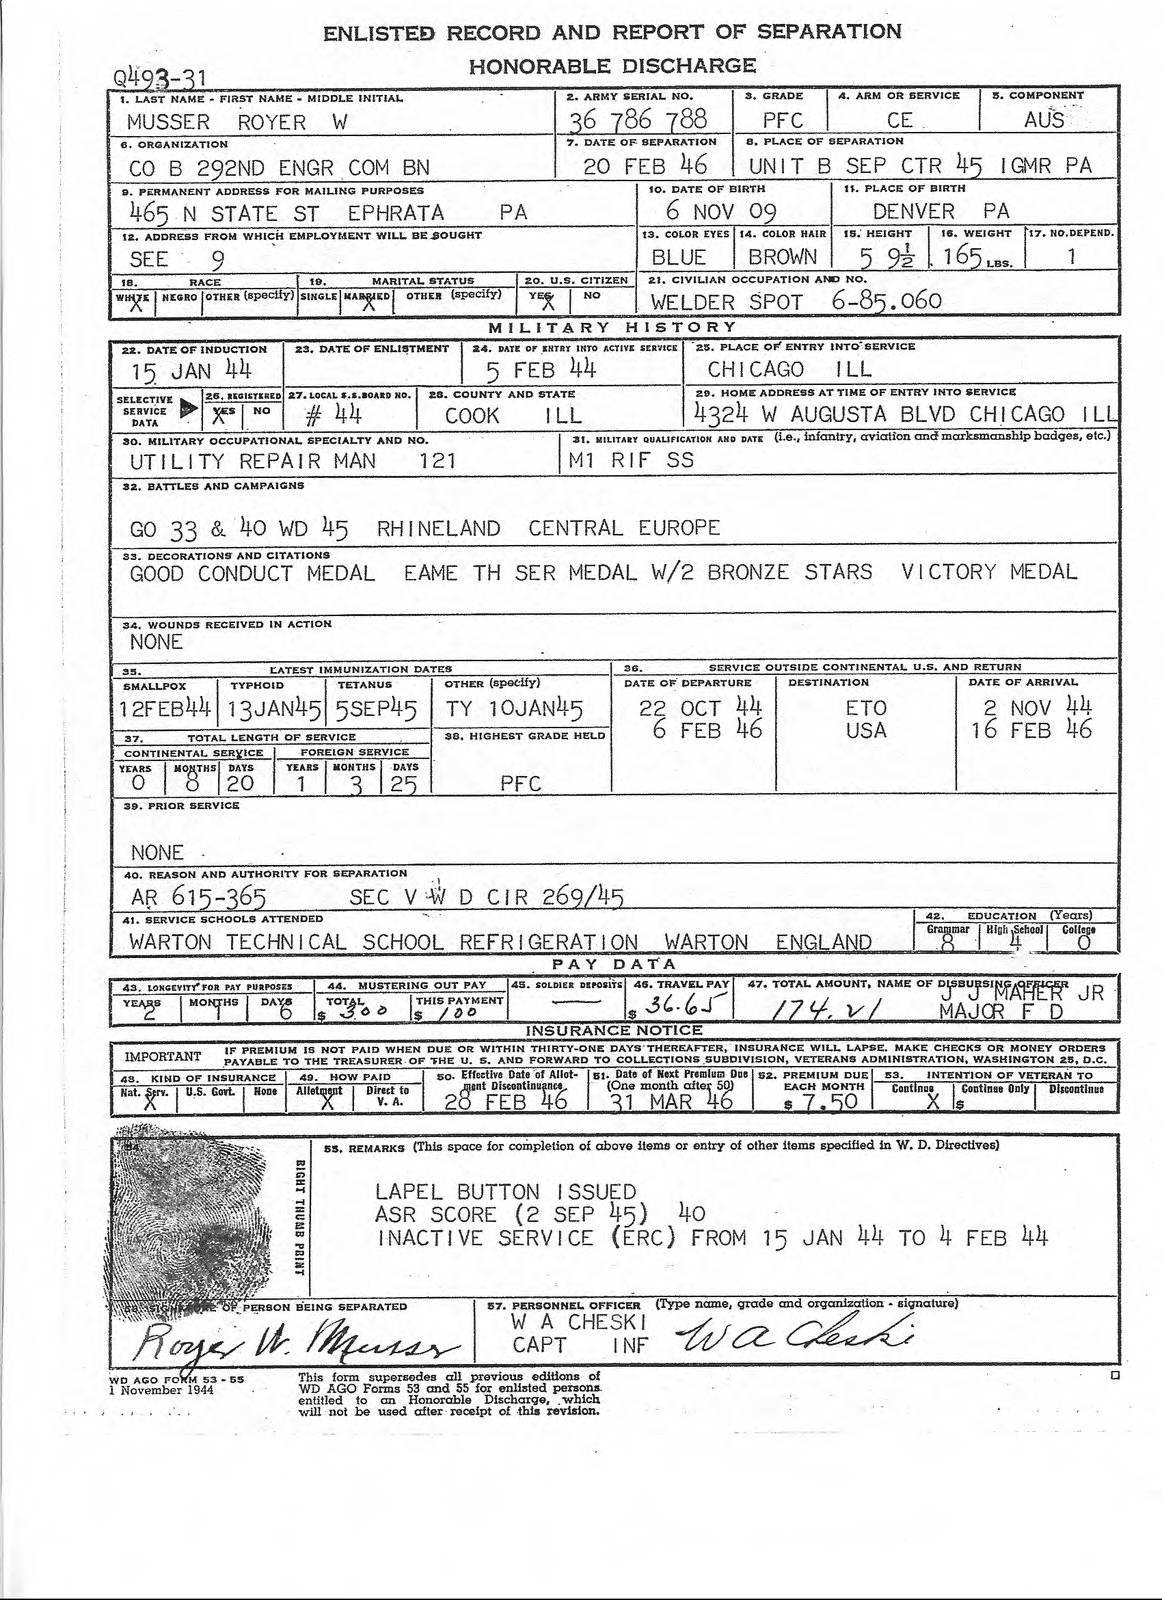 ENLISTED RECORD AND REPORT OF SEPARATION
HONORABLE DISCHARGE
Q493-31
1. LAST NAME - FIRST NAME - MIDDLE INITIAL 2. ARMY SERIAL NO. 3. GRADE 4. ARM OR SERVICE 5. COMPONENT
MUSSER ROYER W 36 786 788 PFC CE AUS
6. ORGANIZATION 7. DATE OF SEPARATION 8. PLACE OF SEPARATION
CO B 292ND ENGR COM BN 20 FEB 46 UNIT B SEP CTR 45 IGMR PA
9. PERMANENT ADDRESS FOR MAILING PURPOSES 10. DATE OF BIRTH 11. PLACE OF BIRTH
465 N STATE ST EPHRATA PA 6 NOV 09 DENVER PA
12. ADDRESS FROM WHICH EMPLOYMENT WILL BE SOUGHT 13. COLOR EYES 14. COLOR HAIR 15. HEIGHT 16. WEIGHT 17. NO. DEPEND.
SEE 9 BLUE BROWN 5 9½ 165 LBS. 1
18. RACE 19. MARITAL STATUS 20. U.S. CITIZEN 21. CIVILIAN OCCUPATION AND NO.
WHITE X NEGRO OTHER (specify) SINGLE MARRIED X OTHER (specify) YES X NO WELDER SPOT 6-85.060
MILITARY HISTORY
22. DATE OF INDUCTION 23. DATE OF ENLISTMENT 24. DATE OF ENTRY INTO ACTIVE SERVICE 25. PLACE OF ENTRY INTO SERVICE
15 JAN 44 5 FEB 44 CHICAGO ILL
SELECTIVE SERVICE DATA 26. REGISTERED 27. LOCAL S.S. BOARD NO. 28. COUNTY AND STATE 29. HOME ADDRESS AT TIME OF ENTRY INTO SERVICE
YES X NO # 44 COOK ILL 4324 W AUGUSTA BLVD CHICAGO ILL
30. MILITARY OCCUPATIONAL SPECIALTY AND NO. 31. MILITARY QUALIFICATION AND DATE (i.e., infantry, aviation and marksmanship badges, etc.)
UTILITY REPAIR MAN 121 M1 RIF SS
32. BATTLES AND CAMPAIGNS
GO 33 & 40 WD 45 RHINELAND CENTRAL EUROPE
33. DECORATIONS AND CITATIONS
GOOD CONDUCT MEDAL EAME TH SER MEDAL W/2 BRONZE STARS VICTORY MEDAL
34. WOUNDS RECEIVED IN ACTION
NONE
35. LATEST IMMUNIZATION DATES 36. SERVICE OUTSIDE CONTINENTAL U.S. AND RETURN
SMALLPOX TYPHOID TETANUS OTHER (specify) DATE OF DEPARTURE DESTINATION DATE OF ARRIVAL
12FEB44 13JAN45 5SEP45 TY 10JAN45 22 OCT 44 ETO 2 NOV 44
6 FEB 46 USA 16 FEB 46
37. TOTAL LENGTH OF SERVICE 38. HIGHEST GRADE HELD
CONTINENTAL SERVICE FOREIGN SERVICE
YEARS MONTHS DAYS YEARS MONTHS DAYS
0 8 20 1 3 25 PFC
39. PRIOR SERVICE
NONE
40. REASON AND AUTHORITY FOR SEPARATION
AR 615-365 SEC V W D CIR 269/45
41. SERVICE SCHOOLS ATTENDED 42. EDUCATION (Years)
Grammar High School College
WARTON TECHNICAL SCHOOL REFRIGERATION WARTON ENGLAND 8 4 0
PAY DATA
43. LONGEVITY FOR PAY PURPOSES 44. MUSTERING OUT PAY 45. SOLDIER DEPOSITS 46. TRAVEL PAY 47. TOTAL AMOUNT, NAME OF DISBURSING OFFICER
YEARS MONTHS DAYS TOTAL THIS PAYMENT J J MAHER JR
2 1 6 $ 300 $ 100 — $ 36.65 174.21 MAJOR F D
INSURANCE NOTICE
IMPORTANT IF PREMIUM IS NOT PAID WHEN DUE OR WITHIN THIRTY-ONE DAYS THEREAFTER, INSURANCE WILL LAPSE. MAKE CHECKS OR MONEY ORDERS
PAYABLE TO THE TREASURER OF THE U. S. AND FORWARD TO COLLECTIONS SUBDIVISION, VETERANS ADMINISTRATION, WASHINGTON 25, D.C.
48. KIND OF INSURANCE 49. HOW PAID 50. Effective Date of Allotment Discontinuance 51. Date of Next Premium Due (One month after 50) 52. PREMIUM DUE EACH MONTH 53. INTENTION OF VETERAN TO
Nat. Serv. X U.S. Govt. None Allotment X Direct to V. A. 28 FEB 46 31 MAR 46 $ 7.50 Continue X Continue Only $ Discontinue
55. REMARKS (This space for completion of above items or entry of other items specified in W. D. Directives)
RIGHT THUMB PRINT
LAPEL BUTTON ISSUED
ASR SCORE (2 SEP 45) 40
INACTIVE SERVICE (ERC) FROM 15 JAN 44 TO 4 FEB 44
56. SIGNATURE OF PERSON BEING SEPARATED 57. PERSONNEL OFFICER (Type name, grade and organization - signature)
W A CHESKI
Royer W. Musser CAPT INF W A Cheski
WD AGO FORM 53 - 55
1 November 1944
This form supersedes all previous editions of
WD AGO Forms 53 and 55 for enlisted persons
entitled to an Honorable Discharge, which
will not be used after receipt of this revision.